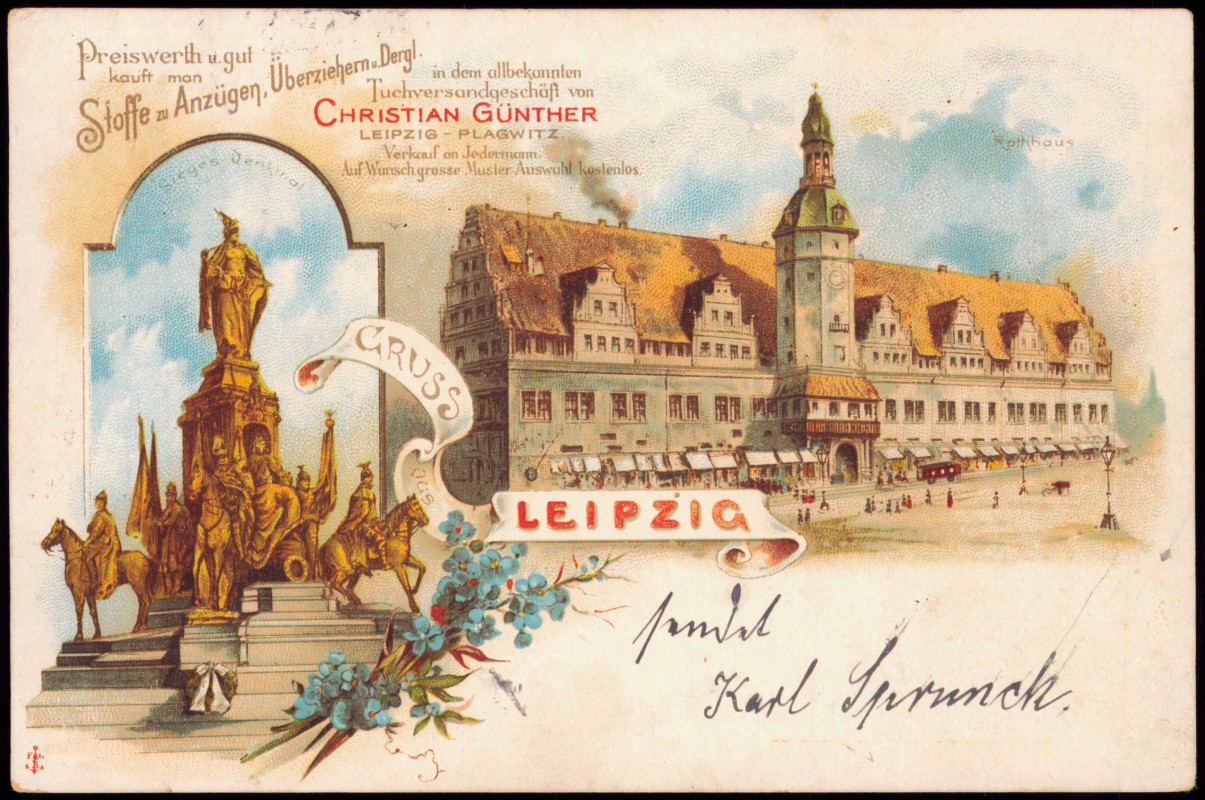 Preiswerth u. gut
kauft man
Stoffe zu Anzügen, Überziehern u. Dergl.
in dem allbekannten
Tuchversandgeschäft von
CHRISTIAN GÜNTHER
LEIPZIG - PLAGWITZ.
Verkauf an Jedermann.
Auf Wunsch grosse Muster-Auswahl kostenlos.
Sieges Denkmal
Rathhaus
GRUSS
aus
LEIPZIG
sendet
Karl Sprunck.